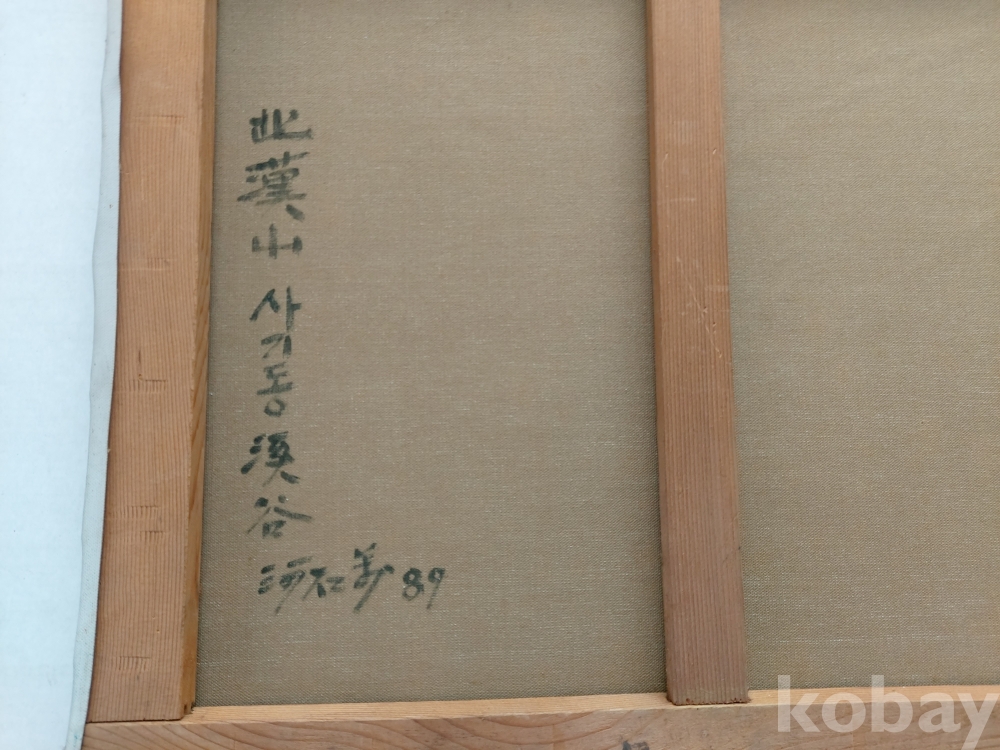 北漢山 사기동 溪谷
河石 89
kobay